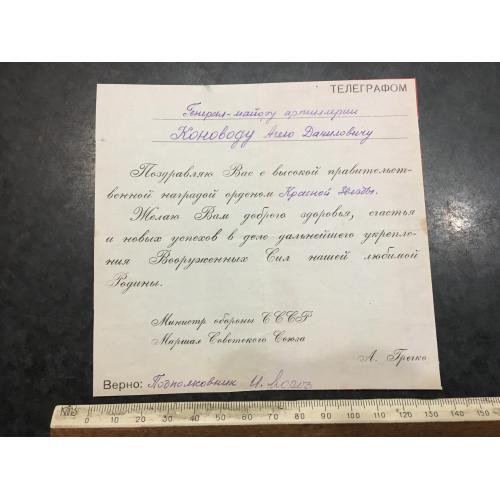 ТЕЛЕГРАФОМ
Генерал-майору артиллерии
Коноводу Даниловичу
Поздравляю Вас с высокой правительст-
венной наградой орденом Красной Звезды.
Желаю Вам доброго здоровья, счастья
и новых успехов в деле дальнейшего укрепле-
ния Вооруженных Сил нашей любимой
Родины.
Министр обороны СССР
Маршал Советского Союза
А. Гречко
Верно: Подполковник И.
0 10 20 30 40 50 60 70 80 90 100 110 120 130 140 150